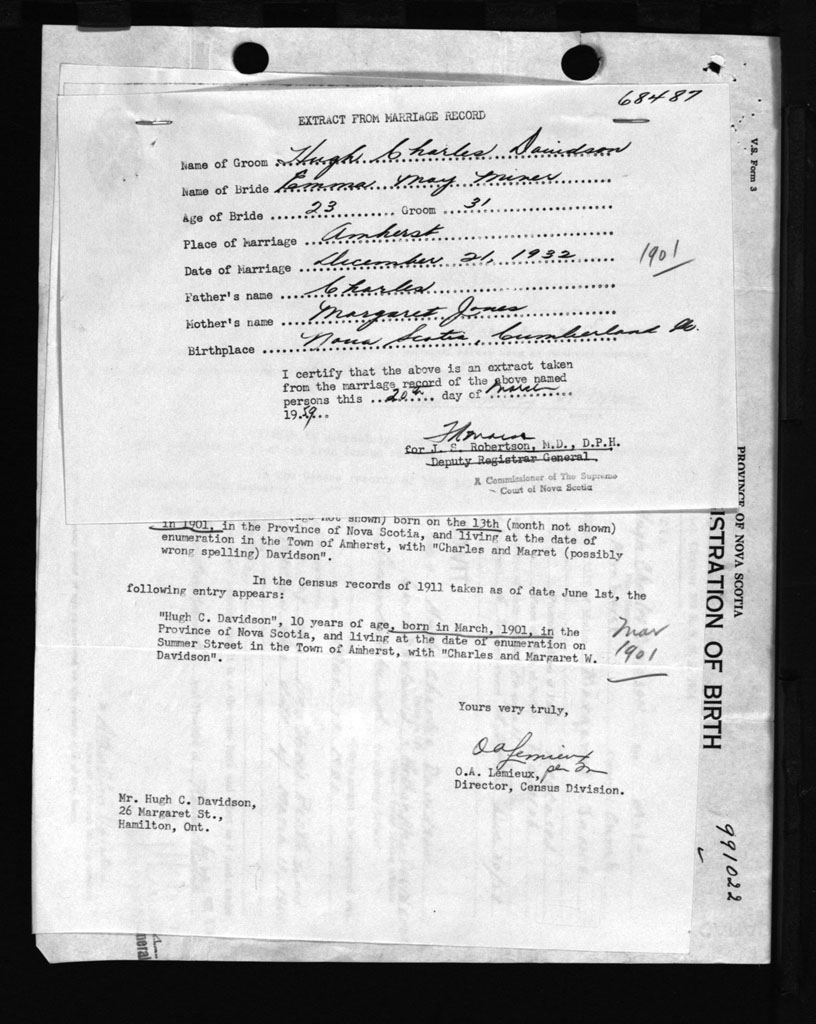 68487
EXTRACT FROM MARRIAGE RECORD
Name of Groom Hugh Charles Davidson
Name of Bride Emma May Miner
Age of Bride 23 Groom 31
Place of Marriage Amherst
Date of Marriage December 21, 1932
1901
Father's name Charles
Mother's name Margaret Jones
Birthplace Nova Scotia, Cumberland Co.
I certify that the above is an extract taken
from the marriage record of the above named
persons this 20th day of March
1959
for J. S. Robertson, M.D., D.P.H.
Deputy Registrar General
A Commissioner of The Supreme
Court of Nova Scotia
(age not shown) born on the 13th (month not shown)
in 1901, in the Province of Nova Scotia, and living at the date of
enumeration in the Town of Amherst, with "Charles and Magret (possibly
wrong spelling) Davidson".
In the Census records of 1911 taken as of date June 1st, the
following entry appears:
"Hugh C. Davidson", 10 years of age, born in March, 1901, in the
Province of Nova Scotia, and living at the date of enumeration on
Summer Street in the Town of Amherst, with "Charles and Margaret W.
Davidson".
Mar
1901
Yours very truly,
O A Lemieux
O.A. Lemieux, per
Director, Census Division.
Mr. Hugh C. Davidson,
26 Margaret St.,
Hamilton, Ont.
V.S. Form 3
PROVINCE OF NOVA SCOTIA
ISTRATION OF BIRTH
991022